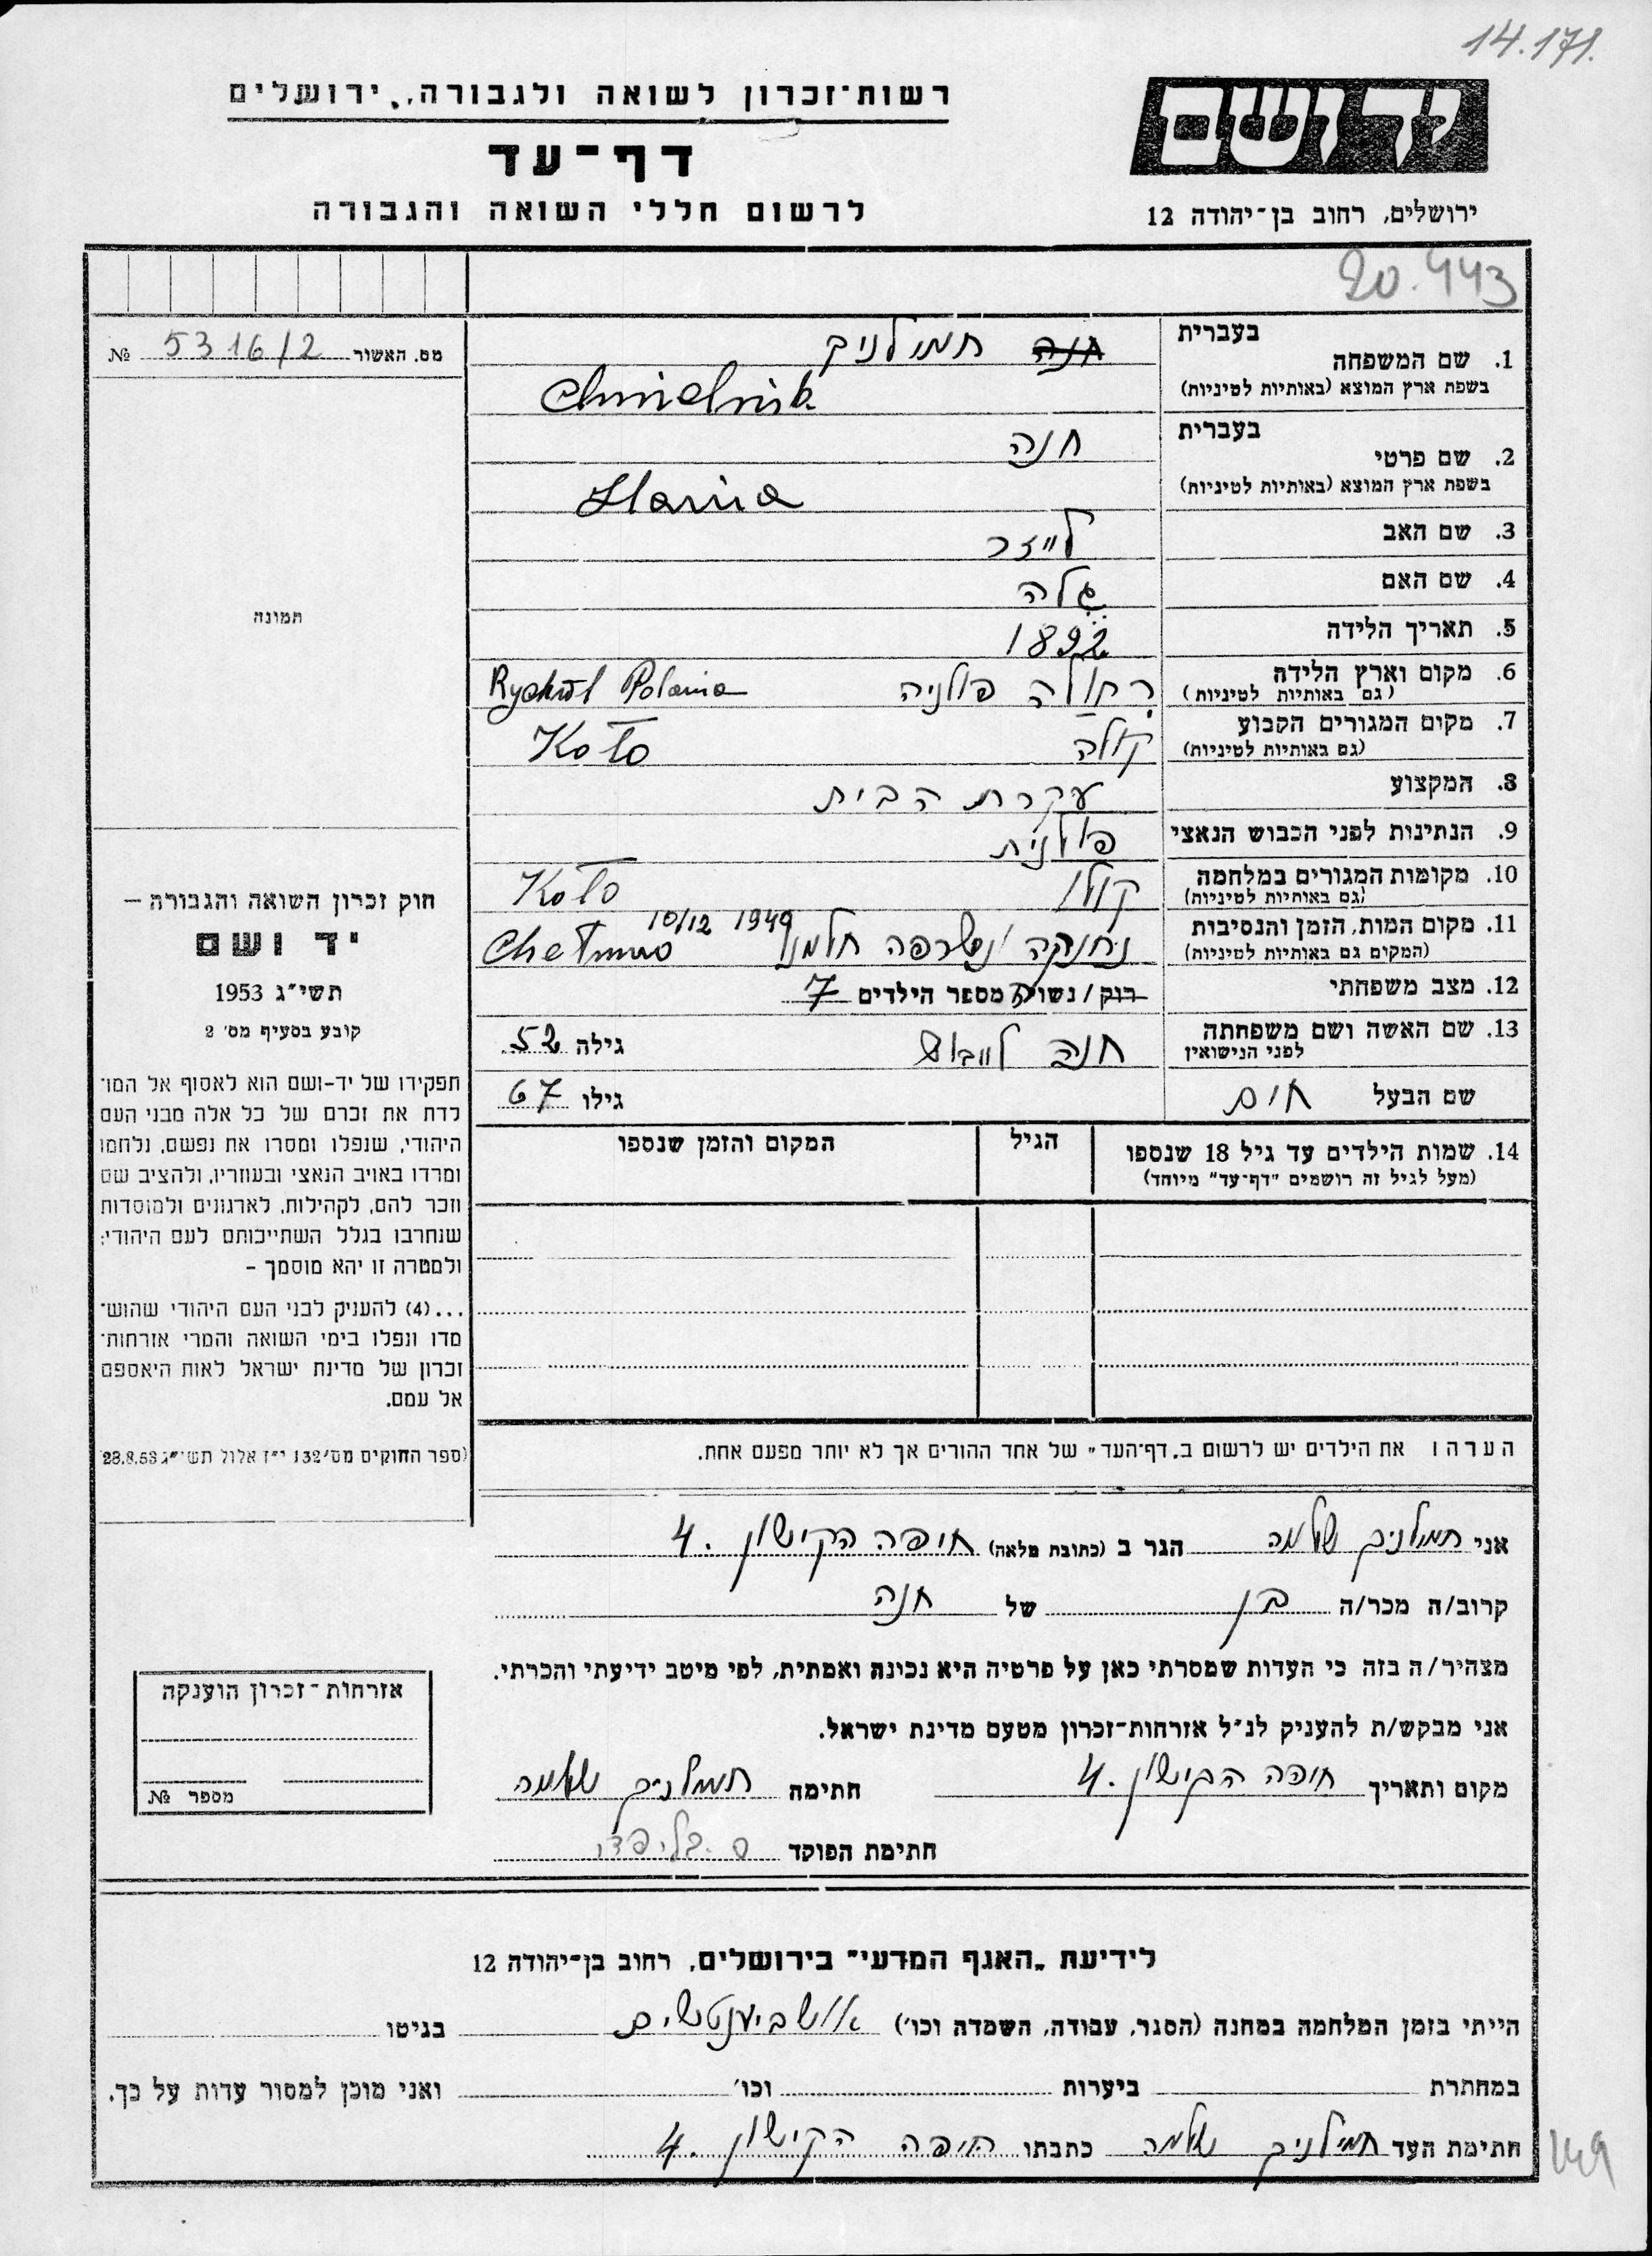 14.171.
יד ושם
ירושלים, רחוב בן־יהודה 12
רשות־זכרון לשואה ולגבורה, ירושלים
דף־עד
לרשום חללי השואה והגבורה
20.443
מס. האשור 5316/2 №
תמונה
1. שם המשפחה
בעברית חנה חמילניק
בשפת ארץ המוצא (באותיות לטיניות) Chmielnik
2. שם פרטי
בעברית חנה
בשפת ארץ המוצא (באותיות לטיניות) Hania
3. שם האב לייזר
4. שם האם גלה
5. תאריך הלידה 1892
6. מקום וארץ הלידה
(גם באותיות לטיניות) פולניה Polania
7. מקום המגורים הקבוע
(גם באותיות לטיניות) קולה Koło
8. המקצוע עקרת הבית
9. הנתינות לפני הכבוש הנאצי פולנית
10. מקומות המגורים במלחמה
(גם באותיות לטיניות) קולו Koło
11. מקום המות, הזמן והנסיבות
(המקום גם באותיות לטיניות) נחנקה ונשרפה חלמנו 10/12 Chełmno
12. מצב משפחתי רוק / נשוי ה מספר הילדים 7
13. שם האשה ושם משפחתה
לפני הנישואין חנה גילה 52
שם הבעל חים גילו 67
14. שמות הילדים עד גיל 18 שנספו
(מעל לגיל זה רושמים "דף־עד" מיוחד)
הגיל
המקום והזמן שנספו
הערה: את הילדים יש לרשום ב„דף־העד" של אחד ההורים אך לא יותר מפעם אחת.
חוק זכרון השואה והגבורה —
יד ושם
תשי"ג 1953
קובע בסעיף מס' 2
תפקידו של יד-ושם הוא לאסוף אל המו־
לדת את זכרם של כל אלה מבני העם
היהודי, שנפלו ומסרו את נפשם, נלחמו
ומרדו באויב הנאצי ובעוזריו, ולהציב שם
וזכר להם, לקהילות, לארגונים ולמוסדות
שנחרבו בגלל השתייכותם לעם היהודי;
ולמטרה זו יהא מוסמך –
...(4) להעניק לבני העם היהודי שהוש־
מדו ונפלו בימי השואה והמרי אזרחות־
זכרון של מדינת ישראל לאות היאספם
אל עמם.
(ספר החוקים מס' 132 י"ז אלול תשי"ג 28.8.53)
אני חמילניק שלמה הגר ב (כתובת מלאה) חיפה הקישון 4.
קרוב/ה מכר/ה בן של חנה
מצהיר/ה בזה כי העדות שמסרתי כאן על פרטיה היא נכונה ואמתית, לפי מיטב ידיעתי והכרתי.
אני מבקש/ת להעניק לנ"ל אזרחות־זכרון מטעם מדינת ישראל.
מקום ותאריך חיפה הקישון 4. חתימה חמילניק שלמה
חתימת הפוקד
אזרחות־זכרון הוענקה
מספר №
לידיעת „האגף המדעי" בירושלים, רחוב בן־יהודה 12
הייתי בזמן המלחמה במחנה (הסגר, עבודה, השמדה וכו') בגיטו
במחתרת ביערות וכו' ואני מוכן למסור עדות על כך.
חתימת העד חמילניק שלמה כתבתו חיפה הקישון 4.
149